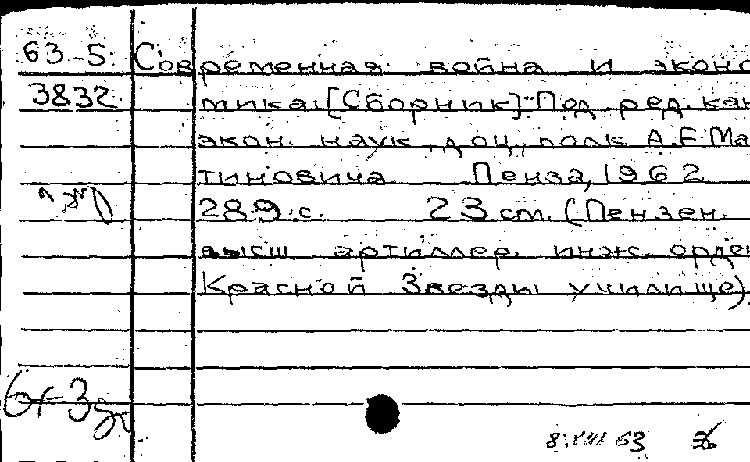 63-5 Современная война и эконо
3832 мика. [Сборник]. Под ред. кан
экон. наук, доц., полк А.Е Ма
тиновича Пенза, 1962
289 с. 23 см. (Пензен.
высш артиллер. инж. орде
Красной Звезды училище).
8.VIII 63